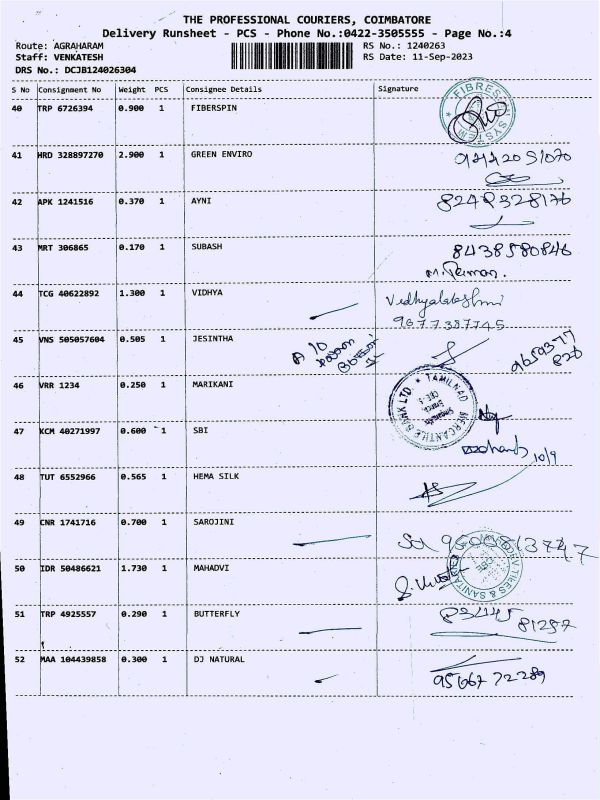 THE PROFESSIONAL COURIERS, COIMBATORE
Delivery Runsheet - PCS - Phone No.:0422-3505555 - Page No.:4
Route: AGRAHARAM RS No.: 1240263
Staff: VENKATESH RS Date: 11-Sep-2023
DRS No.: DCJB124026304
S No Consignment No Weight PCS Consignee Details Signature
40 TRP 6726394 0.900 1 FIBERSPIN
41 HRD 328897270 2.900 1 GREEN ENVIRO
42 APK 1241516 0.370 1 AYNI
8248328176
43 MRT 306865 0.170 1 SUBASH 8438580846
44 TCG 40622892 1.300 1 VIDHYA Vidhyalakshmi
9677387745
45 VNS 505057604 0.505 1 JESINTHA
46 VRR 1234 0.250 1 MARIKANI
TAMILNAD MERCANTILE BANK LTD.
47 KCM 40271997 0.600 1 SBI
10/9
48 TUT 6552966 0.565 1 HEMA SILK
49 CNR 1741716 0.700 1 SAROJINI
50 IDR 50486621 1.730 1 MAHADVI
51 TRP 4925557 0.290 1 BUTTERFLY 83445
81297
52 MAA 104439858 0.300 1 DJ NATURAL
9566772289